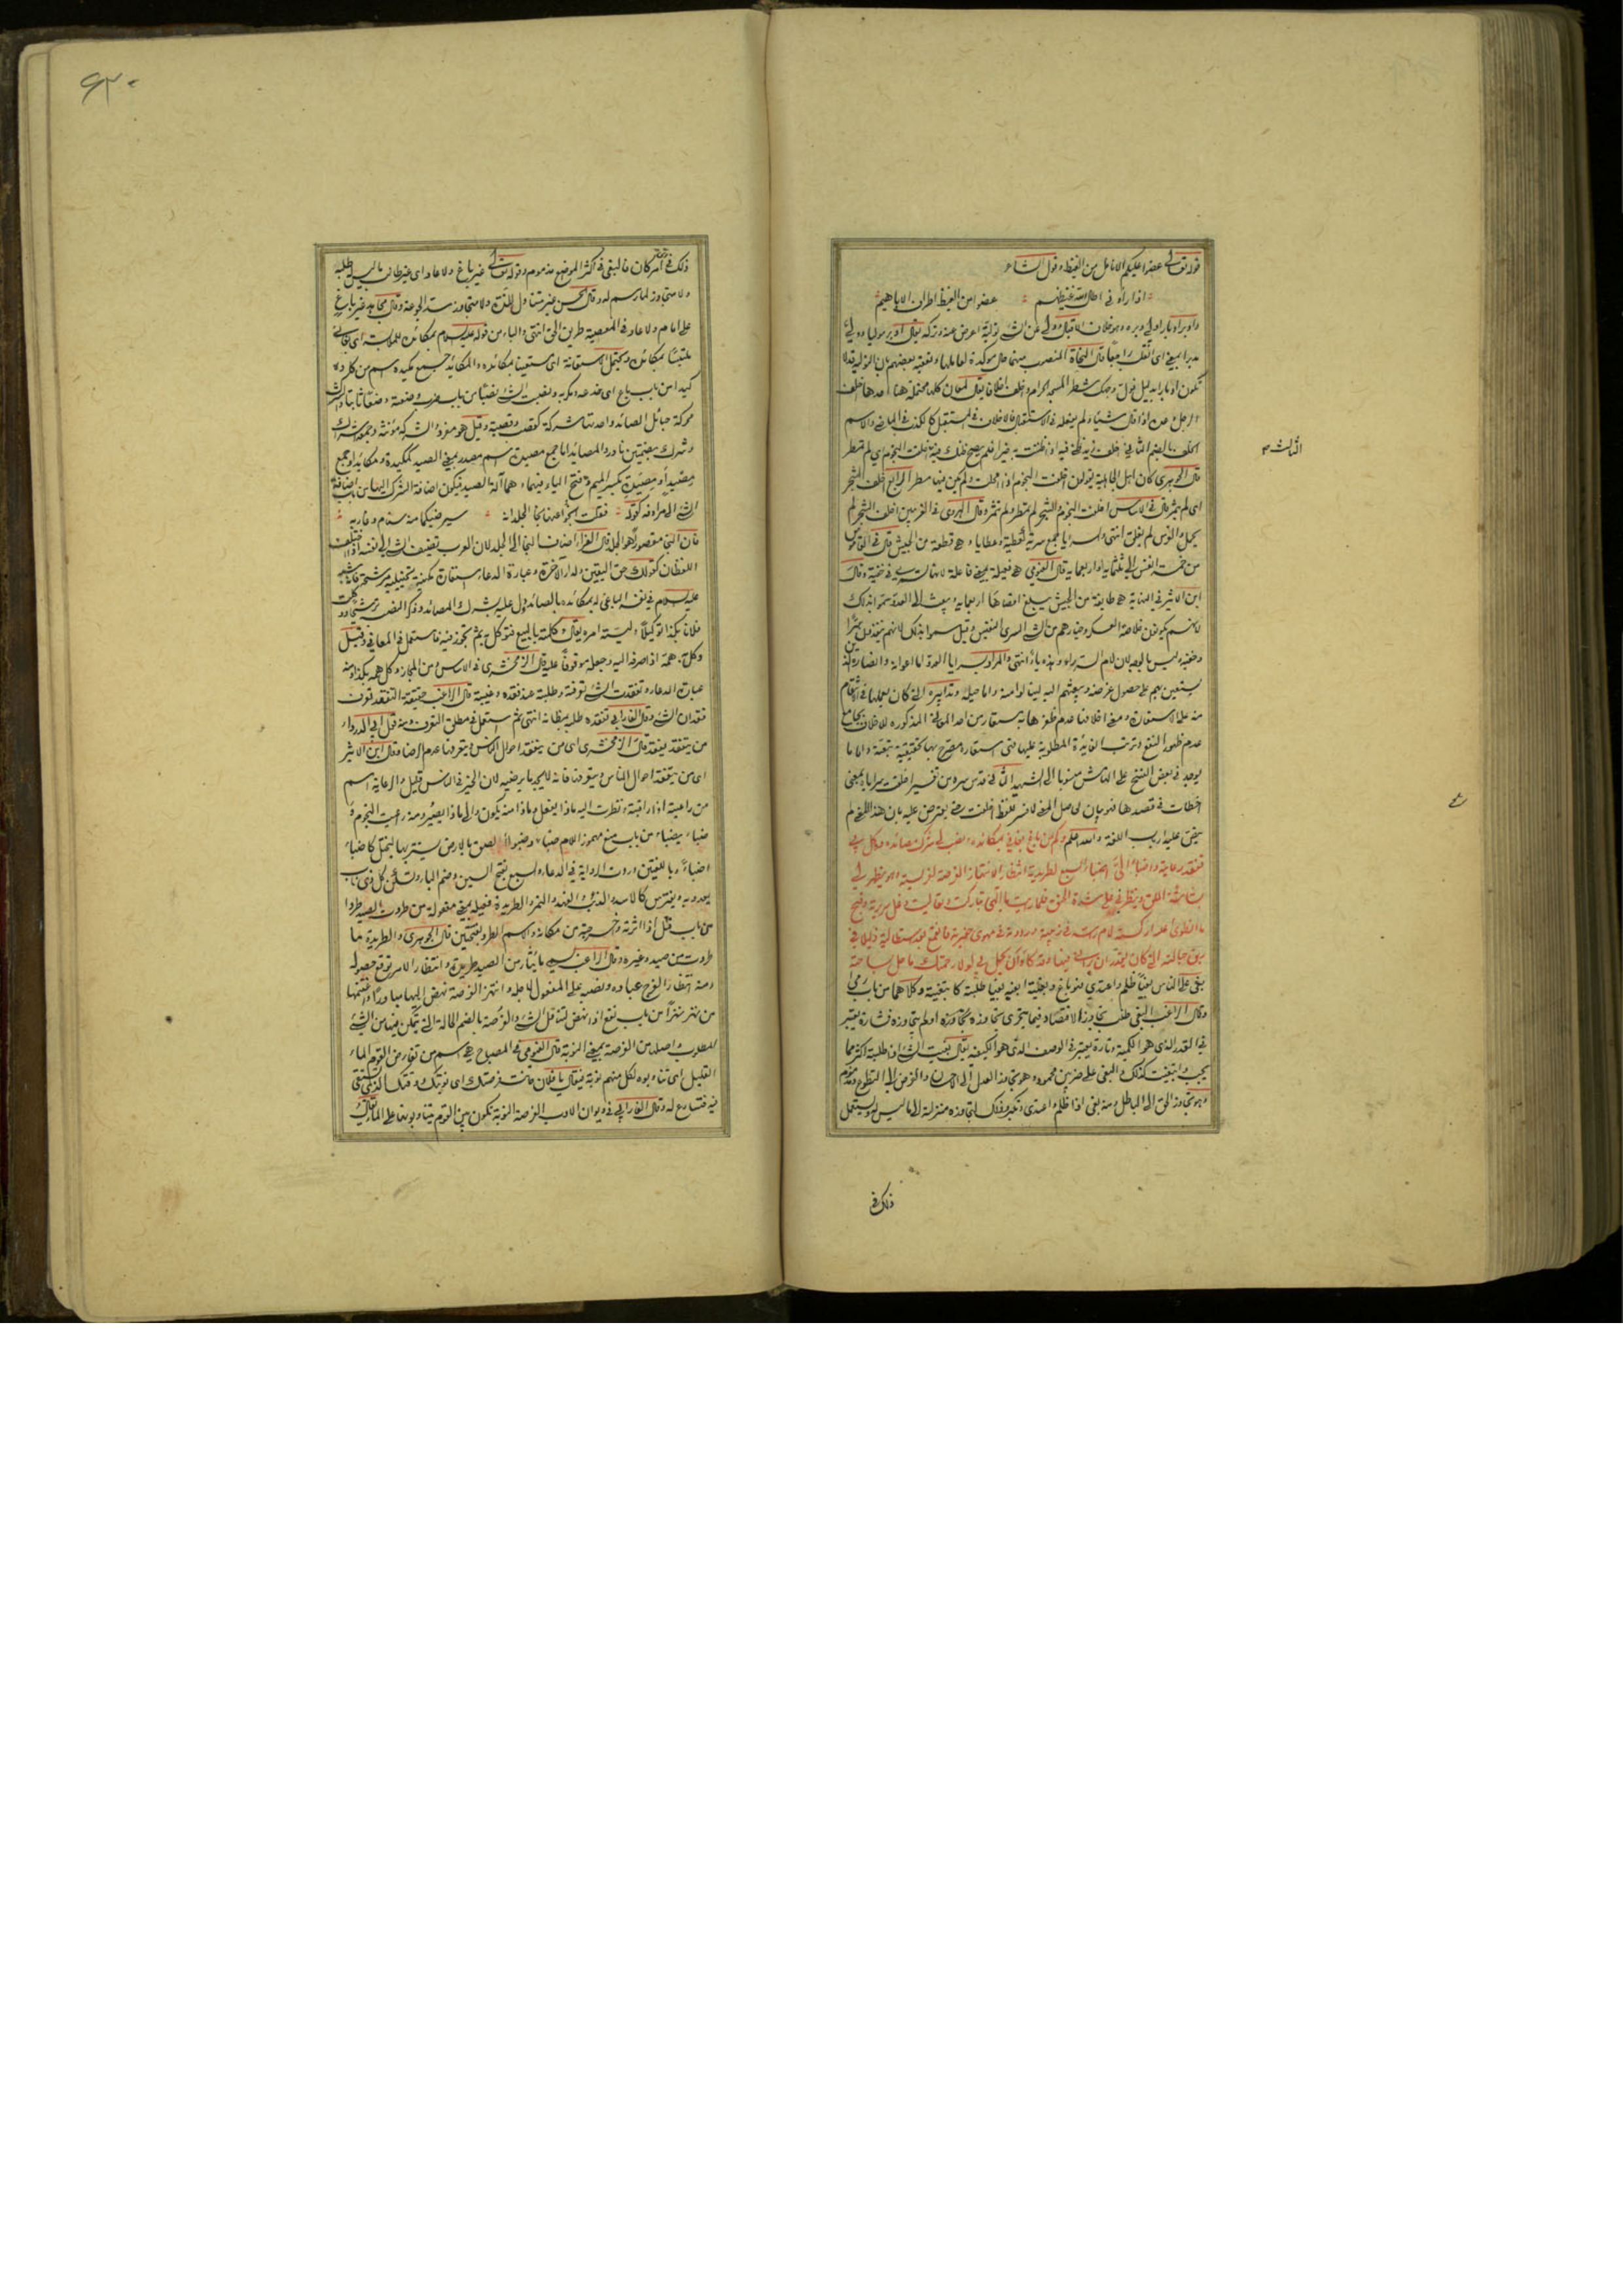 قوله تعالى عضوا عليكم الانامل من الغيظ وقول الشاعر
اذا رأوني اطال الله غيظهم عضوا من الغيظ اطراف الاباهيم
وادبر ادبارا ولى دبره وهو خلاف الاقبال وولى عن الشيء تولية اعرض عنه وتركه يقال ادبر موليا وولى
مدبرا بمعنى اى انقلب راجعا قال النحاة المنتصب منهما حال موكدة لعاملها وتعقبه بعضهم بان التولية قد لا
تكون ادبارا بدليل فول وجهك شطر المسجد الحرام واخلف اخلافا يقال لمعان كلها محتملة هنا احدها اخلف
الرجل وعده اذا قال شيئا ولم يفعله فى الاستقبال فالاخلاف فى المستقبل كالكذب فى الماضى والاسم
الخلف بالضم الثاني اخلف
قال الجوهرى كان اهل الجاهلية يقولون اخلفت النجوم اذا امحلت ولم يكن فيها مطر الرابع اخلف الشجر
اى لم يثمر قال فى الاساس اخلفت النجوم والشجر لم تمطر ولم تثمر وقال الهروى فى الغريبين اخلف الشجر لم
يحمل والغرس لم يعلق انتهى والسرايا جمع سرية كعطية وعطايا وهى قطعة من الجيش قال فى القاموس
من خمسة انفس الى ثلثمائة او اربعمائة قال الفيومى هى فعيلة بمعنى فاعلة لانها تسرى فى خفية وقال
ابن الاثير فى النهاية هى طايفة من الجيش يبلغ اقصاها اربعمائة وتبعث الى العدو سموا بذلك
لانهم يكونون خلاصة العسكر وخيارهم من الشيء السرى النفيس وقيل سموا بذلك لانهم ينفذون سرا
وخفية وليس بالوجه لان لام السر راء وهذه ياء انتهى والمراد بسرايا العدو اما اعوانه وانصاره الذين
يستعين بهم على حصول غرضه ويبعثهم اليه
عدم ظهور النفع وترتب الفايدة المطلوبة عليها
يوجد فى بعض النسخ على الهامش منسوبا الى الشهيد الثاني قدس سره من تفسير اخلفت سراياه بمعنى
اخطات فى قصدها فهو بيان لحاصل المعنى لا تفسير للفظ اخلفت حتى يعترض عليه بان هذا المعنى لم
ينص عليه ارباب اللغة والله اعلم وكم من باغ بغانى بمكائده ونصب لى شرك مصائده ووكل بى
تفقد رعايته واضبأ الى اضباء السبع لطريدته انتظارا لانتهاز الفرصة لفريسته وهو يظهر لى
بشاشة الملق وينظرني على شدة الحنق فلما رايت يا الهى تباركت وتعاليت دغل سريرته وقبح
ما انطوى عليه اركسته لام راسه فى زبيته ورددته فى مهوى حفرته فانقمع بعد استطالته ذليلا فى
ربق حبالته التى كان يقدر ان يرانى فيها وقد كاد ان يحل بى لولا رحمتك ما حل بساحته
بغى على الناس بغيا ظلم واعتدى فهو باغ وبغيته ابغيه بغيا طلبته كابتغيته وكلاهما من باب رمى
وقال الراغب البغى طلب تجاوز الاقتصاد فيما يتحرى تجاوزه او لم يتجاوزه فتارة يعتبر
فى القدر الذى هو الكمية وتارة يعتبر فى الوصف الذى هو الكيفية يقال بغيت الشيء اذا طلبت اكثر مما
يجب وابتغيت كذلك والبغى على ضربين محمود وهو تجاوز العدل الى الاحسان والفرض الى التطوع ومذموم
وهو تجاوز الحق الى الباطل ومنه بغى اذا ظلم واعتدى وتكبر وذلك لتجاوزه منزلته الى ما ليس له ويستعمل
ذلك فى
الثالث
ذلك فى اى امر كان فالبغى فى اكثر المواضع مذموم وقوله تعالى غير باغ ولا عاد اى غير طالب ما ليس له طلبه
ولا متجاوز لما رسم له وقال الحسن غير متناول للذة ولا متجاوز سد الجوعة وقال مجاهد غير باغ
على امام ولا عاد فى المعصية طريق الحق انتهى والباء من قوله عليه السلام بمكائده للملابسة اى بغانى
ملتبسا بمكائده ويحتمل الاستعانة اى مستعينا بمكائده والمكائد جمع مكيدة اسم من كاده
كيدا من باب باع اى خدعه ومكر به ونصبت الشيء نصبا من باب ضرب رفعته ووضعته ثابتا والشرك
محركة حبائل الصائد واحدتها شركة كقصب وقصبة وقيل هو مفرد
وشرك بضمتين نادر والمصائد اما جمع مصيدة اسم مصدر بمعنى الصيد كمكيدة ومكائد او جمع
مصيد او مصيدة بكسر الميم وفتح الياء فيهما وهما آلة الصيد فيكون اضافة الشرك اليها من باب اضافة
الشيء الى مرادفه كقوله فقلت انجوا عنها نجا الجلد انه سيرضيكما منها سنام وغاربه
فان النجا مقصورا هو الجلد قال الفراء اضاف النجا الى الجلد لان العرب تضيف الشيء الى نفسه اذا اختلف
اللفظان كقولك حق اليقين ولدار الآخرة وعبارة الدعاء استعارة مكنية تخييلية مرشحة فانه شبه
عليه السلام فى نفسه الباغى له بمكائده بالصائد ودل عليه بشرك المصائد وذكر النصب ترشيح ووكلت
فلانا بكذا توكيلا وليته امره يقال وكلته بالبيع فتوكل به ثم تجوز فيه فاستعمل فى المعانى وقيل
وكل به همه اذا صرفه اليه وجعله موقوفا عليه قال الزمخشرى فى الاساس ومن المجاز وكل همه بكذا ومنه
عبارة الدعاء وتفقدت الشيء تعرفته وطلبته عند فقده وغيبته قال الراغب حقيقة التفقد تعرف
فقدان الشيء وقال الفارابى تفقده طلبه بمظانه انتهى ثم استعمل فى مطلق التعرف ومنه قول ابى الدرداء
من يتفقد يفقد قال الزمخشرى اى من يتفقد احوال الناس ويتعرفها عدم الرضا وقال ابن الاثير
اى من يتفقد احوال الناس ويتعرفها فانه لا يجد ما يرضيه لان الخير فى الناس قليل والرعاية اسم
من راعيته اذا راقبته ونظرت اليه ماذا يفعل وماذا منه يكون والى ماذا يصير ومنه راعيت النجوم و
ضبأ يضبأ من باب منع مهموز اللام ضبأ وضبوءا لصق بالارض يستتر بها ليختل كاضبأ
اضباء وباللغتين وردت الرواية فى الدعاء والسبع بفتح السين وضم الباء وتسكن كل ذى ناب
يعدو به ويفترس كالاسد والذئب والفهد والنمر والطريدة فعيلة بمعنى مفعولة من طردت الصيد طردا
من باب قتل اذا اثرته واخرجته من مكانه والاسم الطرد بفتحتين قال الجوهرى والطريدة ما
طردت من صيد وغيره وقال الراغب يسمى ما يثار من الصيد طريدة وانتظار الامر توقع حصوله
ومنه انتظار الفرج عبادة ونصبه على المفعول لاجله وانتهز الفرصة نهض اليها مبادرا واغتنمها
من نهز نهزا من باب نفع اذا نهض لتناول الشيء والفرصة بالضم الحالة التى يتمكن فيها من الشيء
المطلوب واصلها من الفرصة بمعنى النوبة قال الفيومى فى المصباح هى اسم من تفارص القوم الماء
القليل اى تناوبوه لكل منهم نوبة فيقال يا فلان جاءت فرصتك اى نوبتك ووقتك الذى تستقى
فيه فتسارع له وقال الفارابى فى ديوان الادب الفرصة النوبة تكون بين القوم يتناوبونها على الماء يقال